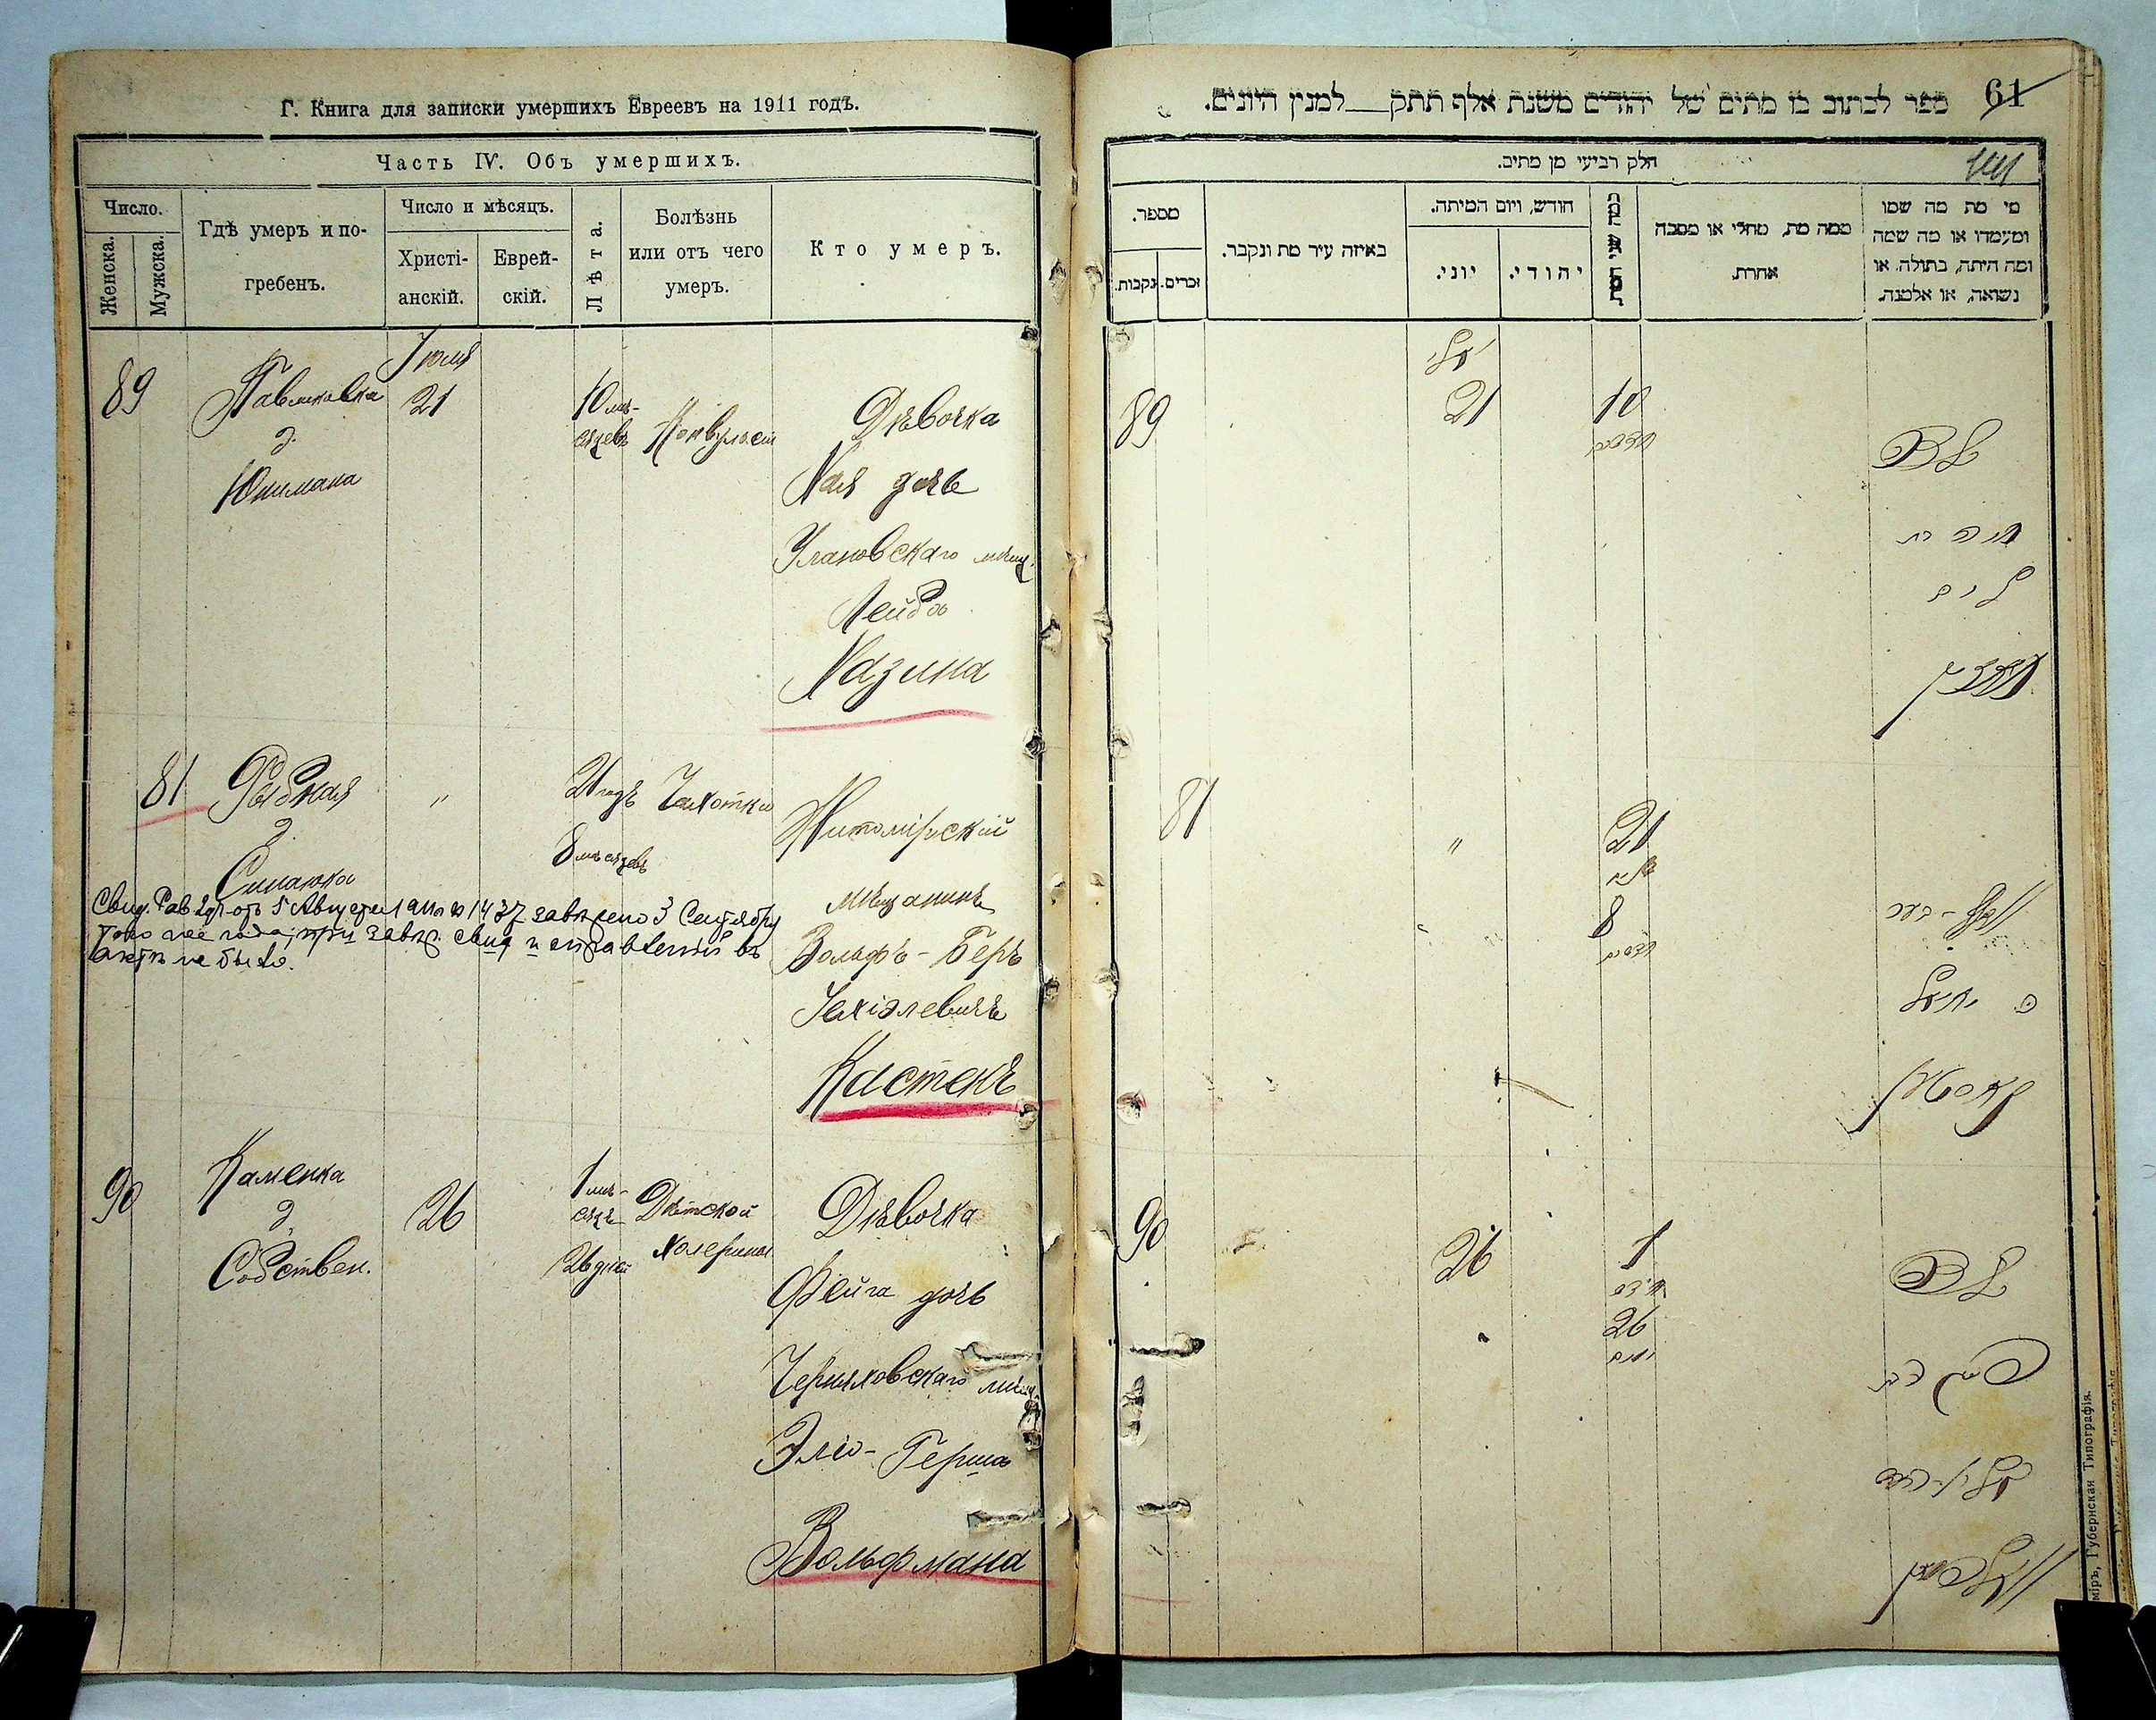 Г. Книга для записки умершихъ Евреевъ на 1911 годъ.
Часть IV. Объ умершихъ.
Число.
Женска.
Мужска.
Гдѣ умеръ и погребенъ.
Число и мѣсяцъ.
Христіанскій.
Еврейскій.
Лѣта.
Болѣзнь или отъ чего умеръ.
Кто умеръ.
Іюля
89
Павликовка
д.
21
10 мѣсяцевъ
Дѣвочка
Хая дочь
Улановскаго мѣщ.
Лейба
Хазина
81
Рыбная
д.
"
21 годъ
8 мѣсяцевъ
Чахотка
Житомірскій
мѣщанинъ
Вольфъ-Беръ
Іехіэлевичъ
Кастенъ
Свид. Рав. отъ 5 Августа 1911 № 1437 завѣрено 3 Сентября
того же года; при завѣр. свид. исправленій въ
актѣ не было.
90
Каменка
д.
Собствен.
26
1 мѣсяцъ
26 дней
Дѣтской
холерины
Дѣвочка
Фейга дочь
Черняховскаго мѣщ.
Эліо-Герша
Вольфмана
61
ספר לכתוב בו מתים של יהודים משנת אלף תתק למנין היונים.
חלק רביעי מן מתים.
מספר.
נקבות.
זכרים.
באיזה עיר מת ונקבר.
חודש, ויום המיתה.
יוני.
יהודי.
כמה שני המת
ממה מת, מחלי או מסבה אחרת.
מי מת מה שמו
ומעמדו או מה שמה
ומה היתה, בתולה, או
נשואה, או אלמנה.
יולי
89
21
10
חדשים
חיה בת
ליב
חאזין
81
"
21
שנה
8
חדשים
וואלף-בער
ב יחיאל
קאסטען
90
26
1
חדש
26
ימים
פייגא בת
וואלפמאן
міръ, Губернская Типографія.